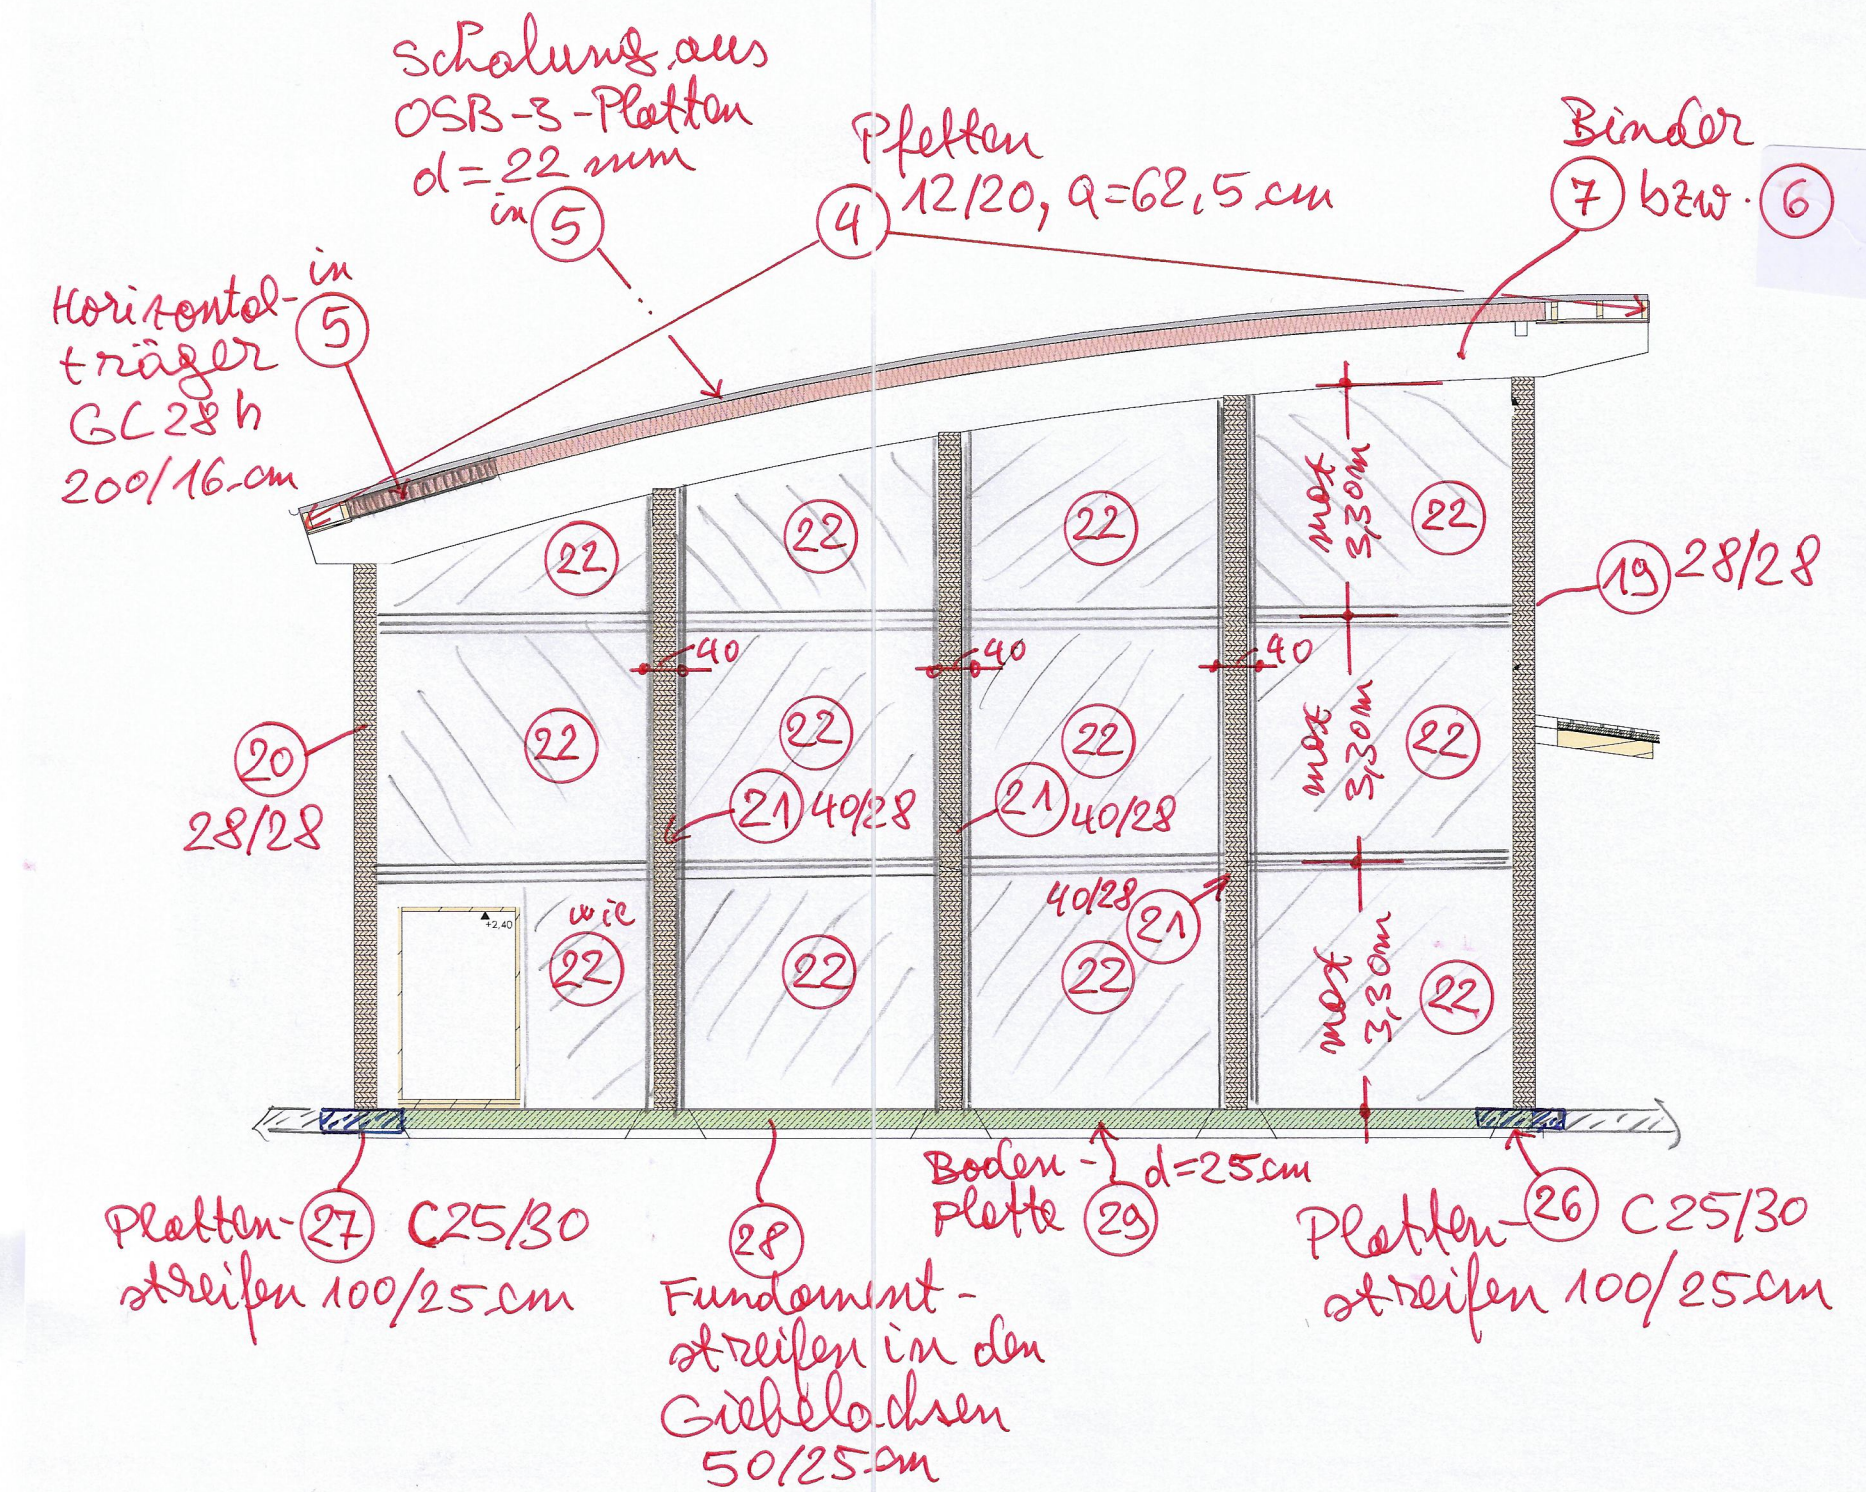 Schalung aus
OSB-3-Platten
d=22 mm
in 5
Pfetten
4 12/20, a=62,5 cm
Binder
7 bzw. 6
Horizontal- in
träger 5
GL28h
200/16 cm
22
22
22
22
max
3,30m
19 28/28
40
40
40
20
28/28
22
22
22
22
max
3,30m
21 40/28
21 40/28
40/28
21
+2,40
wie
22
22
22
22
max
3,30m
Platten- 27 C25/30
streifen 100/25 cm
28
Fundament-
streifen in den
Giebelachsen
50/25 cm
Boden- d=25 cm
platte 29
Platten- 26 C25/30
streifen 100/25 cm